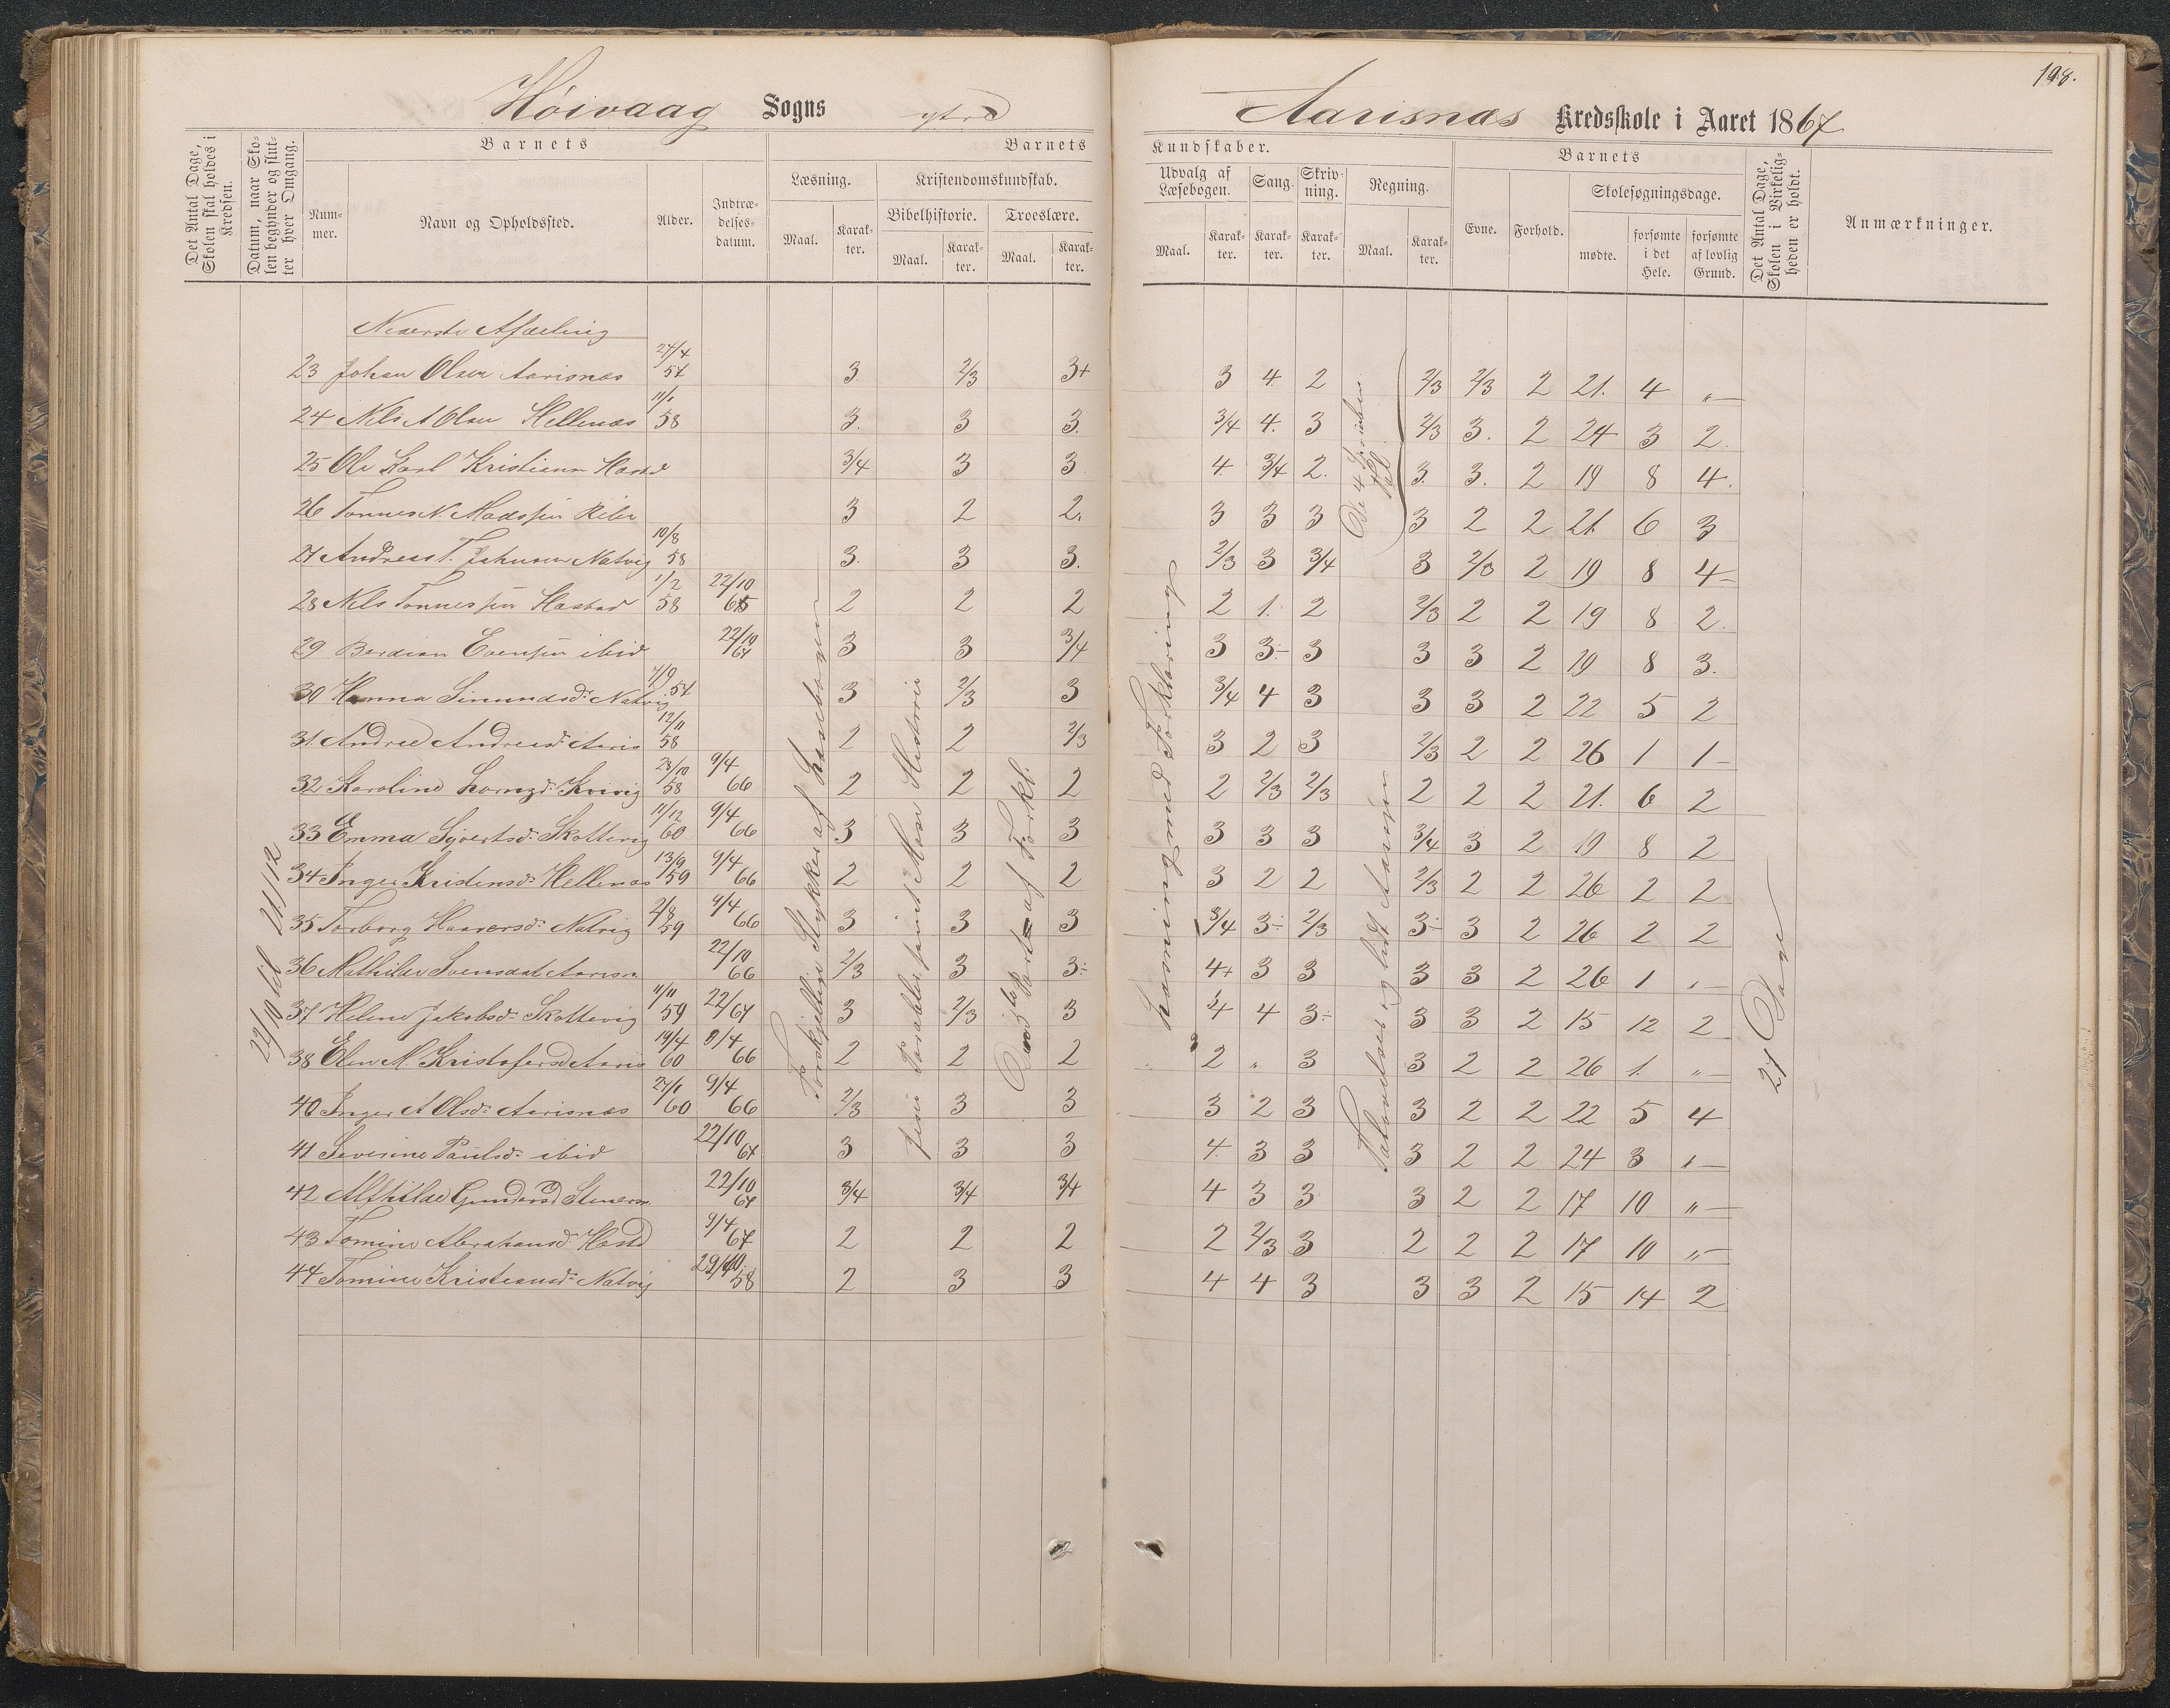 198.
Høivaag Sogns ytre Aarisnæs Kredsskole i Aaret 1867
Det Antal Dage, Skolen skal holdes i Kredsen.
Datum, naar Skolen begynder og slutter hver Omgang.
Barnets
Nummer.
Navn og Opholdssted.
Alder.
Indtrædelsesdatum.
Barnets
Læsning.
Maal.
Karakter.
Kristendomskundskab.
Bibelhistorie.
Maal.
Karakter.
Troeslære.
Maal.
Karakter.
Kundskaber.
Udvalg af Læsebogen.
Maal.
Karakter.
Sang.
Karakter.
Skrivning.
Karakter.
Regning.
Maal.
Karakter.
Barnets
Evne.
Forhold.
Skolesøgningsdage.
mødte.
forsømte i det Hele.
forsømte af lovlig Grund.
Det Antal Dage, Skolen i Virkeligheden er holdt.
Anmærkninger.
22/10 til 21/12
Forskjellige Stykker af Læsebogen
Jesu Parabler samt Mose Historie
Part af Forkl.
Læsning med Forklaring
De 4 Tal
Taløvelser og lidt Aarspr
27 Dage
Nederste Afdeling
23 Johan Olsen Aarisnæs 27/4 57 3. 2/3 3+ 3 4. 2 2/3 2/3 2 21. 4 „
24 Nils A Olsen Hellenæs 11/1 58 3. 3 3. 3/4 4. 3 2/3 3. 2 24 3 2.
25 Ole Karl Kristiann Hæstd 3/4 3 3 4. 3/4 2. 3. 3. 2 19 8 4.
26 Tønnes N. Madssen 3 2 2. 3 3 3 3 2 2 21. 6 3
27 Andreas T. Johnsen Natvig 10/8 58 3. 3 3. 2/3 3 3/4 3 2/3 2 19 8 4
28 Nils Tønnessen Hæstad 1/2 58 22/10 65 2 2 2 2 1. 2 2/3 2 2 19 8 2.
29 Evensen ibid 22/10 67 3 3 3/4 3 3 3 3 3 2 19 8 3.
30 Hanna Simundsd. Natvig 7/9 57 3 2/3 3 3/4 4 3 3 3 2 22 5 2
31. Andrea Andreasd. Aaris 12/11 58 2 2 2/3 3 2 3 2/3 2 2 26 1 1
32 Karoline 28/10 58 9/4 66 2 2 2 2 2/3 2/3 2 2 2 21. 6 2
33 Emma Sjvertsd. Skottevig 11/12 60 9/4 66 3 3 3 3 3 3 3/4 3 2 19 8 2
34 Inger Kristensd. Hellenæs 13/9 59 9/4 66 2 2 2 3 2 2 2/3 2 2 26 2 2
35 Torborg Haaversd. Natvig 2/8 59 9/4 66 3 3 3 3/4 3÷ 2/3 3÷ 3 2 26 2 2
36 Mathilde Svensdat Aarisn 22/10 66 2/3 3 3÷ 4+ 3 3 3 3 2 26 1 „
37 Helene Jakobsd. Skottevig 11/11 59 22/67 3 2/3 3 3/4 4 3÷ 3 3 2 15 12 2
38 Elen M. Kristofersd Aaris 19/4 60 9/4 66 2 2 2 2 „ 3 3 2 2 26 1. „
40 Inger A Olsd. Aarisnæs 27/1 60 9/4 66 2/3 3 3 3 2 3 3 2 2 22 5 4
41 Severine Paulsd. ibid 22/10 67 3 3 3 4. 3 3 3 2 2 24 3 „
42 Alfhilde Gundersd 22/10 67 3/4 3/4 3/4 4 3 3 3 2 2 17 10 „
43 Tomine Abrahamsd. Hæstd 9/4 67 2 2 2 2 2/3 3 2 2 2 17 10 „
44 Tomine Kristiansd. Natvig 29/10 58 2 3 3 4 4 3 3 3 2 15 14 2